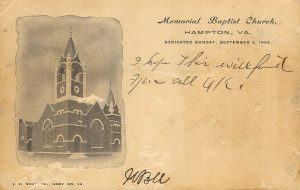 Memorial Baptist Church,
HAMPTON, VA.
DEDICATED SUNDAY, SEPTEMBER 2, 1906.
I hope this will find
you all O.K.